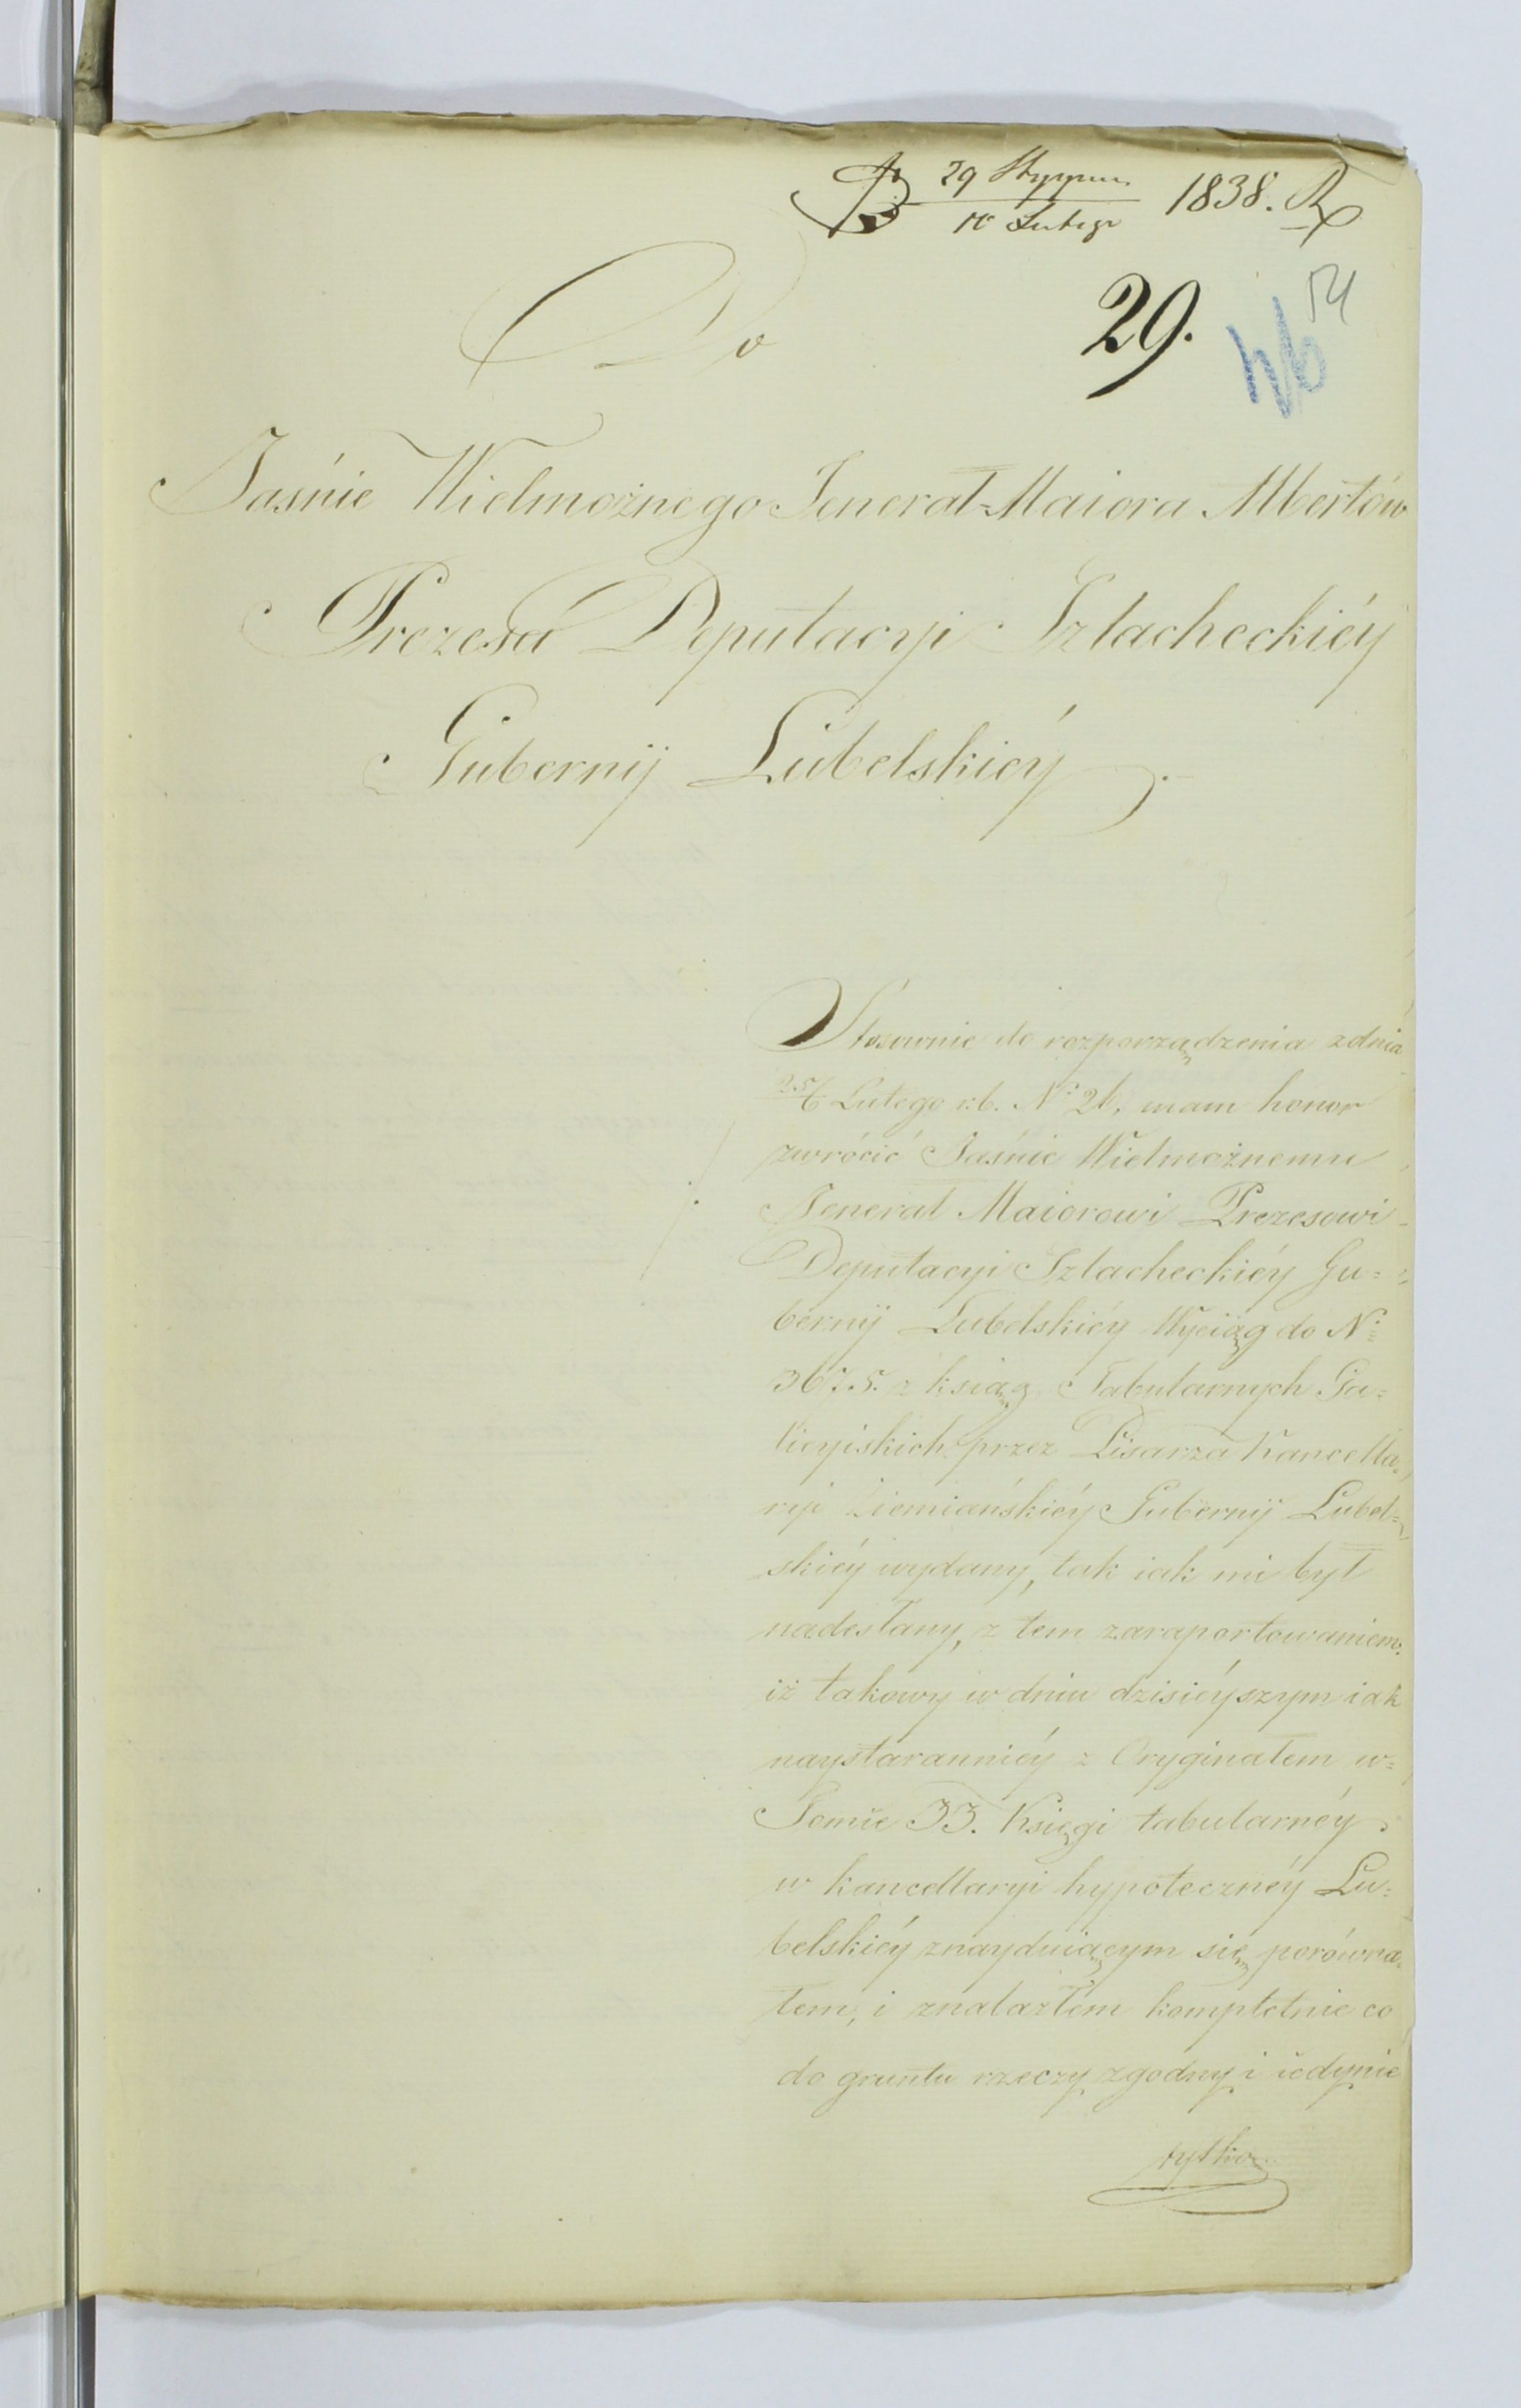 29 Stycznia
10 Lutego 1838.
29.
54
Do
Jaśnie Wielmożnego Jenerał-Maiora Albertów
Prezesa Deputacyi Szlacheckiéy
Gubernij Lubelskiéy.
Stosownie do rozporządzenia z dnia
25/6 Lutego r.b. N: 26, mam honor
zwrócić Jaśnie Wielmożnemu
Jenerał Maiorowi Prezesowi
Deputacyi Szlacheckiéy Gu=
bernij Lubelskiéy Wyciąg do N:
3675. z ksiąg Tabularnych Ga=
licyiskich przez Pisarza Kancella=
ryi Ziemiańskiéy Gubernij Lubel=
skiéy wydany, tak iak mi był
nadesłany, z tem zaraportowaniem
iż takowy w dniu dzisiéyszym iak
naystaranniéy z Oryginałem w=
Tomie 33. Księgi tabularnéy
w kancellaryi hypotecznéy Lu=
belskiéy znayduiącym się porówna=
łem, i znalazłem kompletnie co
do gruntu rzeczy zgodny i iedynie
tylko